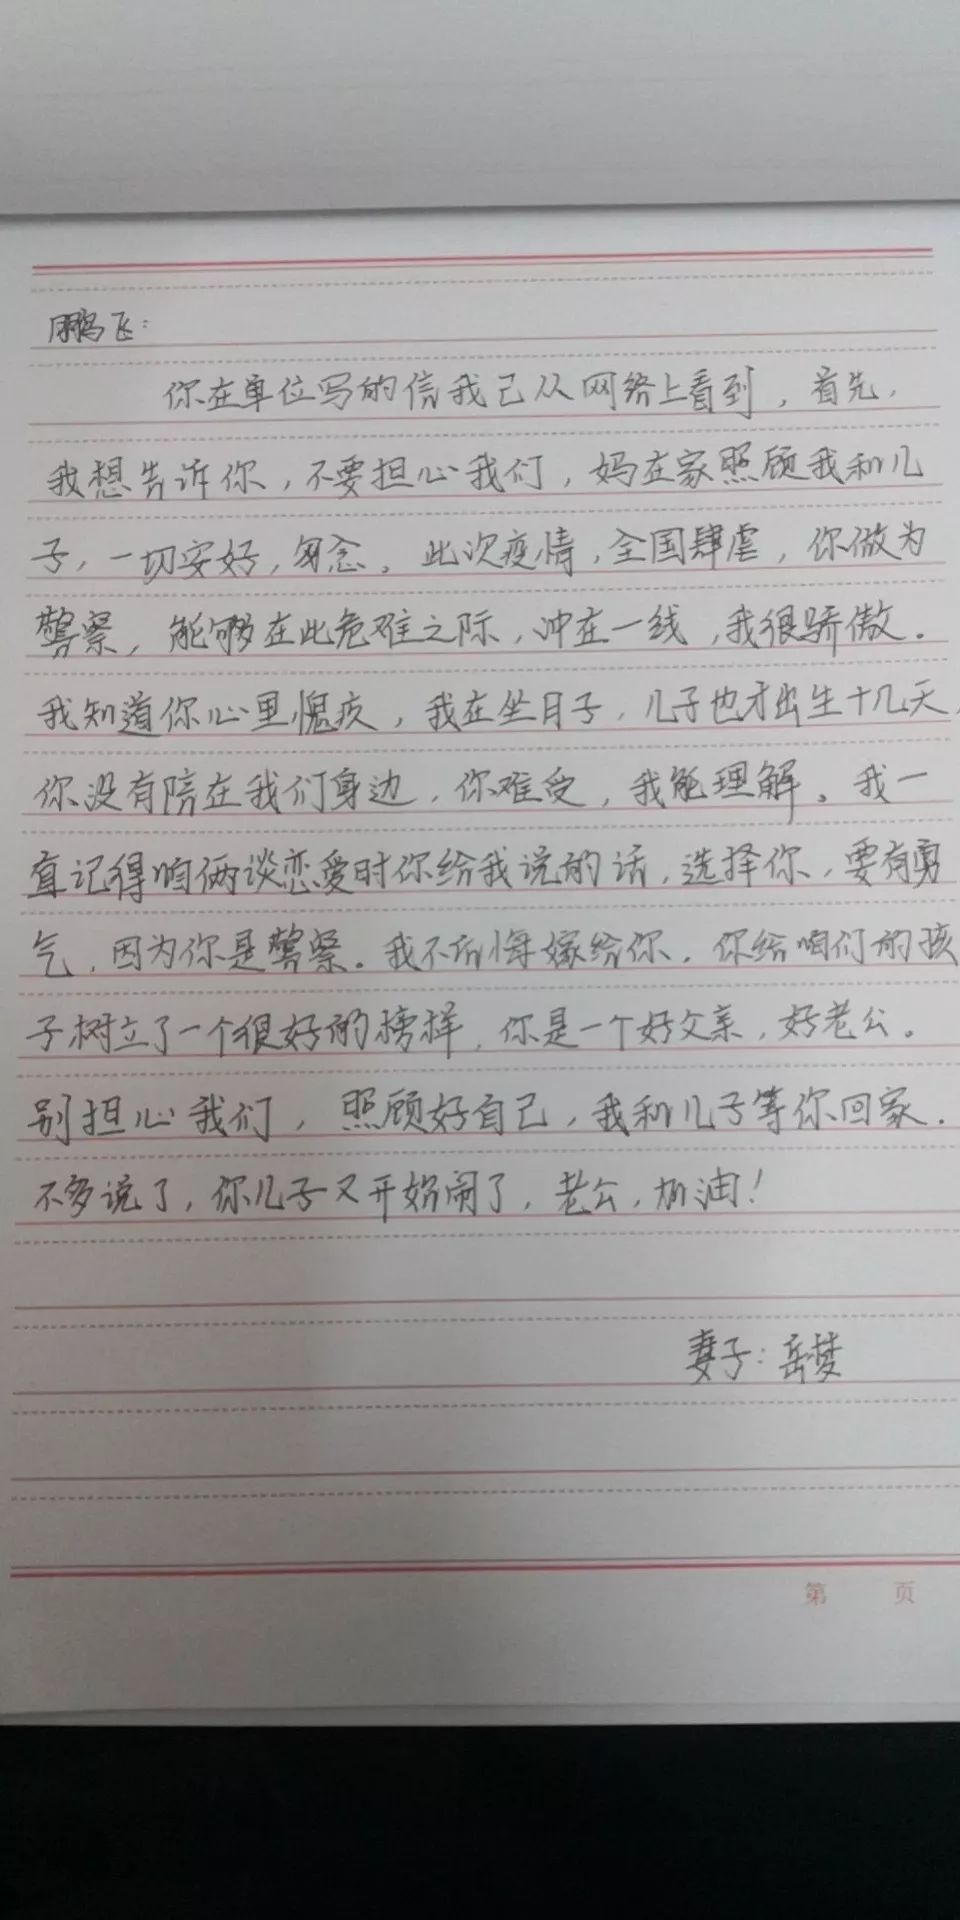 鹏飞：
你在单位写的信我已从网络上看到，首先，
我想告诉你，不要担心我们，妈在家照顾我和儿
子，一切安好，勿念。此次疫情，全国肆虐，你做为
警察，能够在此危难之际，冲在一线，我很骄傲。
我知道你心里愧疚，我在坐月子，儿子也才出生十几天，
你没有陪在我们身边，你难受，我能理解。我一
直记得咱俩谈恋爱时你给我说的话，选择你，要有勇
气，因为你是警察。我不后悔嫁给你，你给咱们的孩
子树立了一个很好的榜样，你是一个好父亲，好老公。
别担心我们，照顾好自己，我和儿子等你回家。
不多说了，你儿子又开始闹了，老公，加油！
妻子：岳梦
第 页